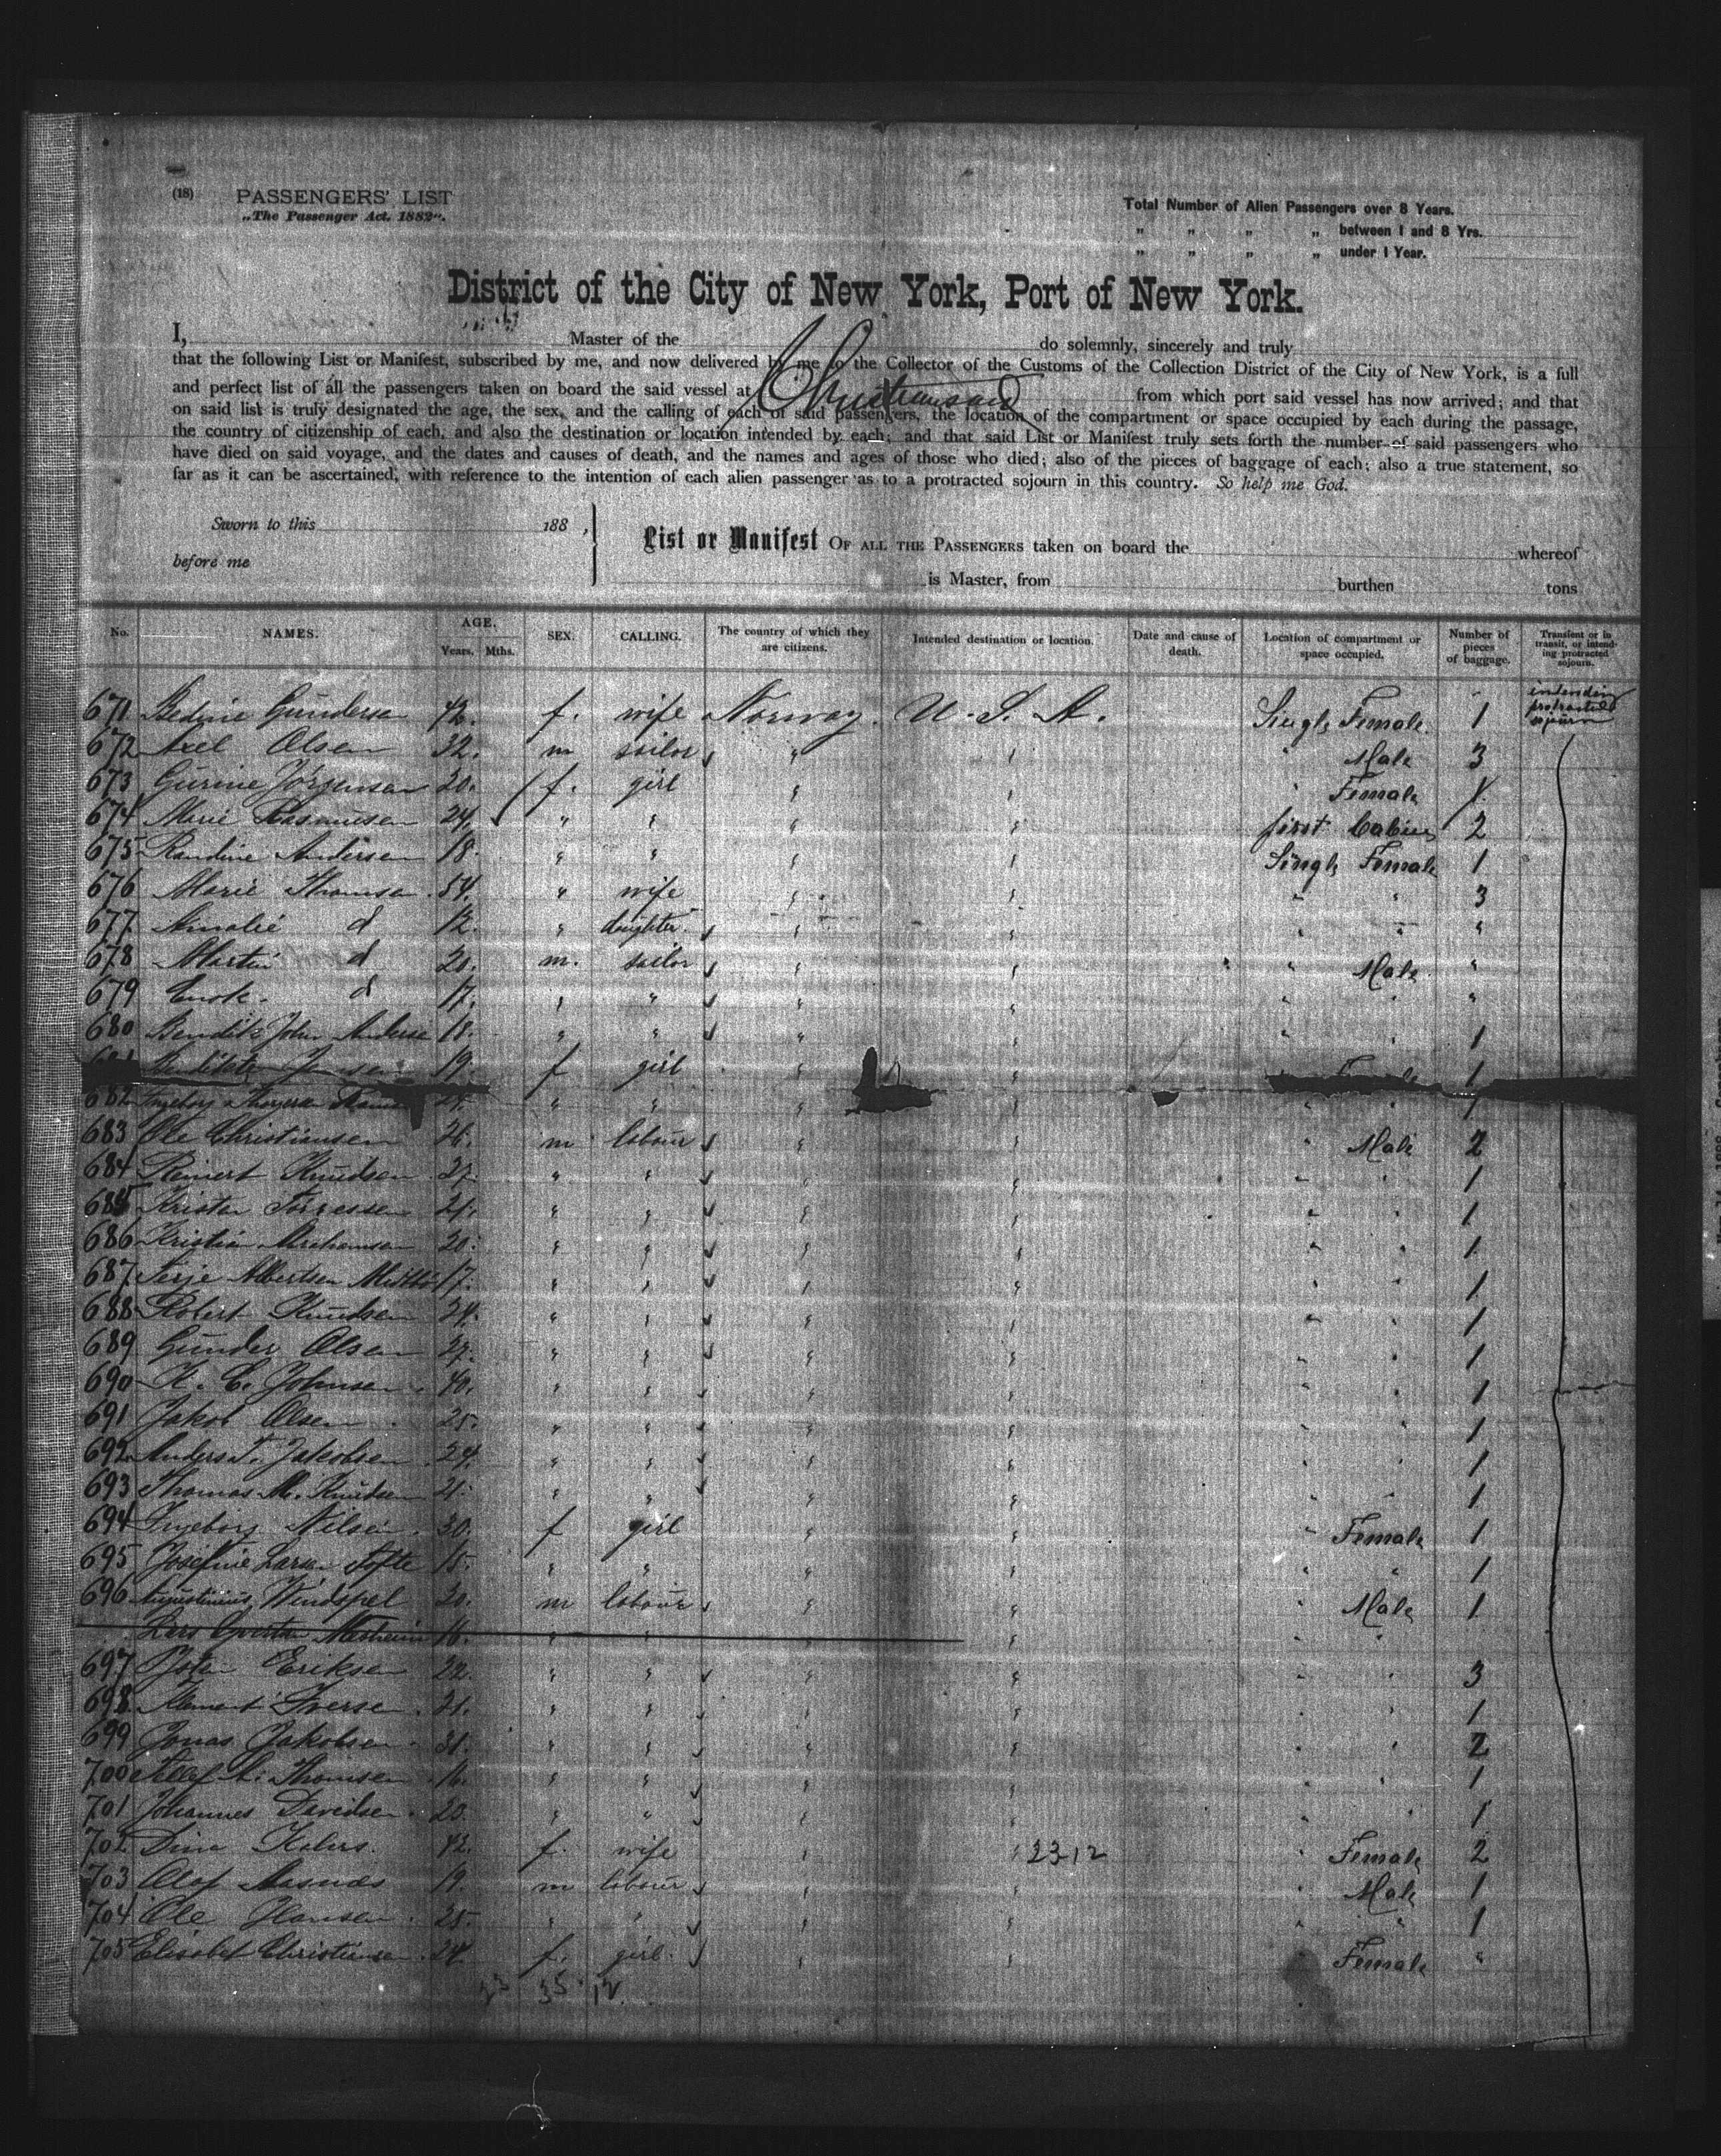 (18) PASSENGERS' LIST
„The Passenger Act, 1882".
Total Number of Alien Passengers over 8 Years.
„ „ „ „ between 1 and 8 Yrs.
„ „ „ „ under 1 Year.
District of the City of New York, Port of New York.
I, Master of the do solemnly, sincerely and truly
that the following List or Manifest, subscribed by me, and now delivered by me to the Collector of the Customs of the Collection District of the City of New York, is a full
and perfect list of all the passengers taken on board the said vessel at Christiansand from which port said vessel has now arrived; and that
on said list is truly designated the age, the sex, and the calling of each of said passengers, the location of the compartment or space occupied by each during the passage,
the country of citizenship of each, and also the destination or location intended by each; and that said List or Manifest truly sets forth the number of said passengers who
have died on said voyage, and the dates and causes of death, and the names and ages of those who died; also of the pieces of baggage of each; also a true statement, so
far as it can be ascertained, with reference to the intention of each alien passenger as to a protracted sojourn in this country. So help me God.
Sworn to this 188 ,
before me
List or Manifest OF ALL THE PASSENGERS taken on board the whereof
is Master, from burthen tons
No. NAMES. AGE. Years. Mths. SEX. CALLING. The country of which they are citizens. Intended destination or location. Date and cause of death. Location of compartment or space occupied. Number of pieces of baggage. Transient or in transit, or intending protracted sojourn.
671 Gundersen 42. f. wife Norway. U. S. A. Single Female 1 intending protracted sojourn
672 Axel Olsen 32. m sailor " " " Male 3
673 Gurine Jörgensen 20. f. girl " " " Female
674 Marie Rasmusen 24. " " " " first Cabin 2
675 Randine Andersen 18. " " " " Single Female 1
676 Marie Thomsen 54. " wife " " " " 3
677 Amalie d 12. " daughter " " " " "
678 Martin d 20. m. sailor " " " Male "
679 Enok. d 17. " " " " " " "
680 Bendik John Anderse 18. " " " " " " 1
Jensen 19. f girl " " 1
682 Ingeborg " " " " " " 1
683 Ole Christiansen 26. m labour " " " Male 2
684 Reinert Knudsen 27. " " " " " " 1
685 Kristen Torressen 21. " " " " " " 1
686 Kristian Abrahamsen 20. " " " " " " 1
687 Terje Albertsen 17. " " " " " " 1
688 Robert Knudsen 24. " " " " " " 1
689 Gunder Olsen 27. " " " " " " 1
690 K. C. Johnsen 40. " " " " " " 1
691 Jakob Olsen 25. " " " " " " 1
692 Anders T. Jakobsen 24. " " " " " " 1
693 Thomas M. Knudsen 21. " " " " " " 1
694 Ingeborg Nilsen 30. f girl " " " Female 1
695 Josefine Larsen Tofte 15. " " " " " " 1
696 Augustinius Windspel 20. m labour " " " Male 1
Lars 16. " " " " " "
697 Eriksen 22. " " " " " " 3
698 Iverse 21. " " " " " " 1
699 Jonas Jakobsen 31. " " " " " " 2
700 Thomsen 16. " " " " " " 1
701 Johannes Davidsen 20. " " " " " " 1
702 Dina 42. f. wife " " 2312 " Female 2
703 Olaf 19. m labour " " " Male 1
704 Ole Hansen 25. " " " " " " 1
705 Elisabet Christiansen 24. f. girl " " Female "
23 35 12